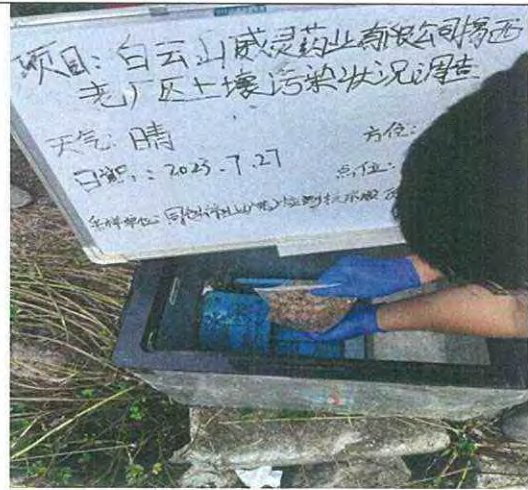 项目：白云山威灵药业有限公司揭西
老厂区土壤污染状况调查
天气：晴
方位：
日期：2023.7.27
点位：
采样单位：同创伟业（广东）检测技术股